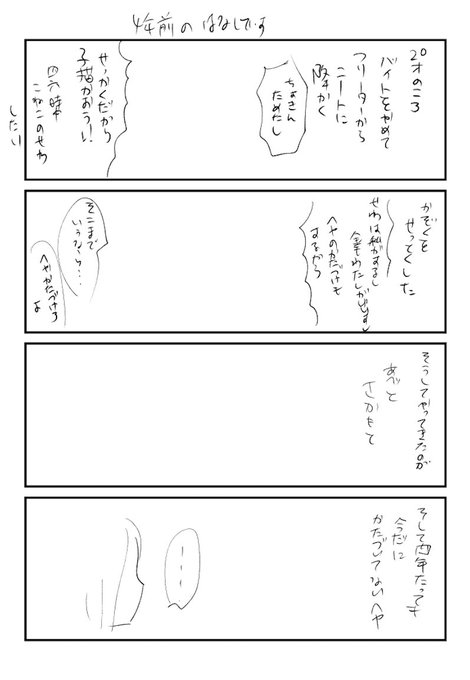 4年前のはなしです
20才のころ
バイトをやめて
フリーターから
ニートに
ちょきん
ためたし
せっかくだから
子猫かおう!!
したい
かぞくを
せっとくした
せわは私がするし
ヘヤのかたづけも
するから
そこまで
いうなら・・・
ヘヤかたづけろ
よ
そうしてやってきたのが
あべと
さかもと
そして四年たっても
今だに
かたづいてないヘヤ
・・・